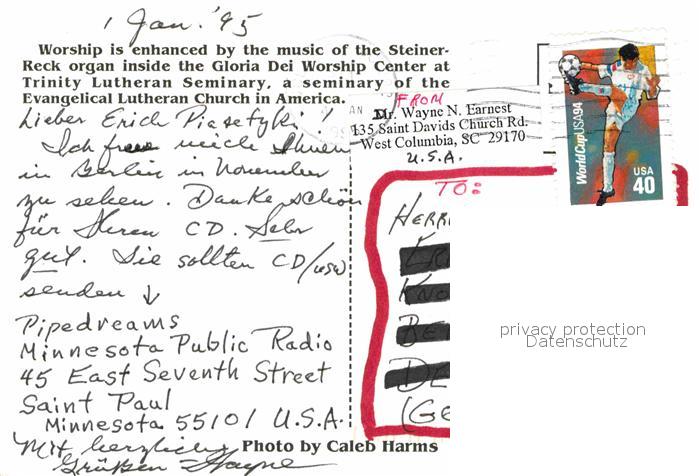 1 Jan. '95
Worship is enhanced by the music of the Steiner-
Reck organ inside the Gloria Dei Worship Center at
Trinity Lutheran Seminary, a seminary of the
Evangelical Lutheran Church in America.
Lieber Erich Piasetzki!
Ich freue mich Ihnen
in Berlin in November
zu sehen. Danke schön
für Ihren CD. Sehr
gut. Sie sollten CD/usw
senden ↓
Pipedreams
Minnesota Public Radio
45 East Seventh Street
Saint Paul
Minnesota 55101 U.S.A.
Mit herzlichen
Grüßen Wayne
Photo by Caleb Harms
FROM
Dr. Wayne N. Earnest
135 Saint Davids Church Rd.
West Columbia, SC 29170
U.S.A.
World Cup USA 94
USA
40
TO:
HERR
(GE
privacy protection
Datenschutz